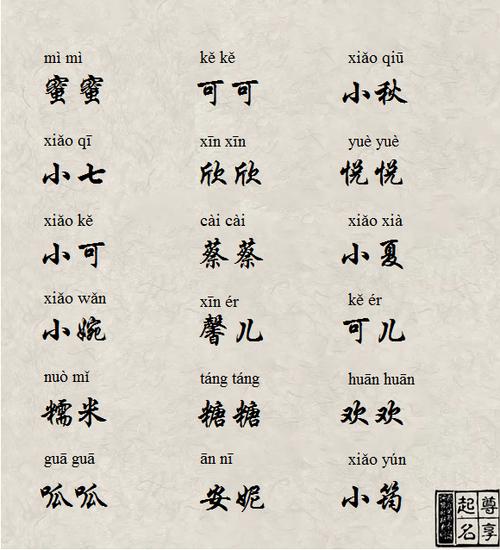 mì mì kě kě xiǎo qiū
蜜蜜 可可 小秋
xiǎo qī xīn xīn yuè yuè
小七 欣欣 悦悦
xiǎo kě cài cài xiǎo xià
小可 蔡蔡 小夏
xiǎo wǎn xīn ér kě ér
小婉 馨儿 可儿
nuò mǐ táng táng huān huān
糯米 糖糖 欢欢
guā guā ān nī xiǎo yún
呱呱 安妮 小筠
尊享
起名